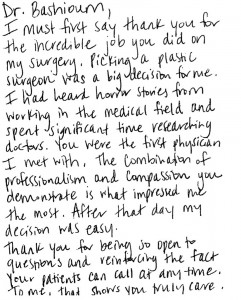 Dr. Bashioum,
I must first say thank you for
the incredible job you did on
my surgery. Picking a plastic
surgeon was a big decision for me.
I had heard horror stories from
working in the medical field and
spent significant time researching
doctors. You were the first physician
I met with. The combination of
professionalism and compassion you
demonstrate is what impressed me
the most. After that day my
decision was easy.
Thank you for being so open to
questions and reinforcing the fact
your patients can call at any time.
To me, that shows you truly care.